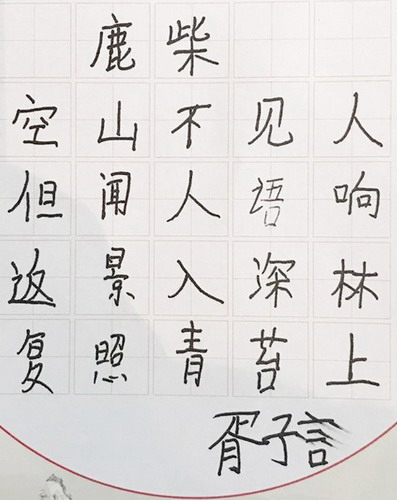 鹿柴
空山不见人
但闻人语响
返景入深林
复照青苔上
胥子言